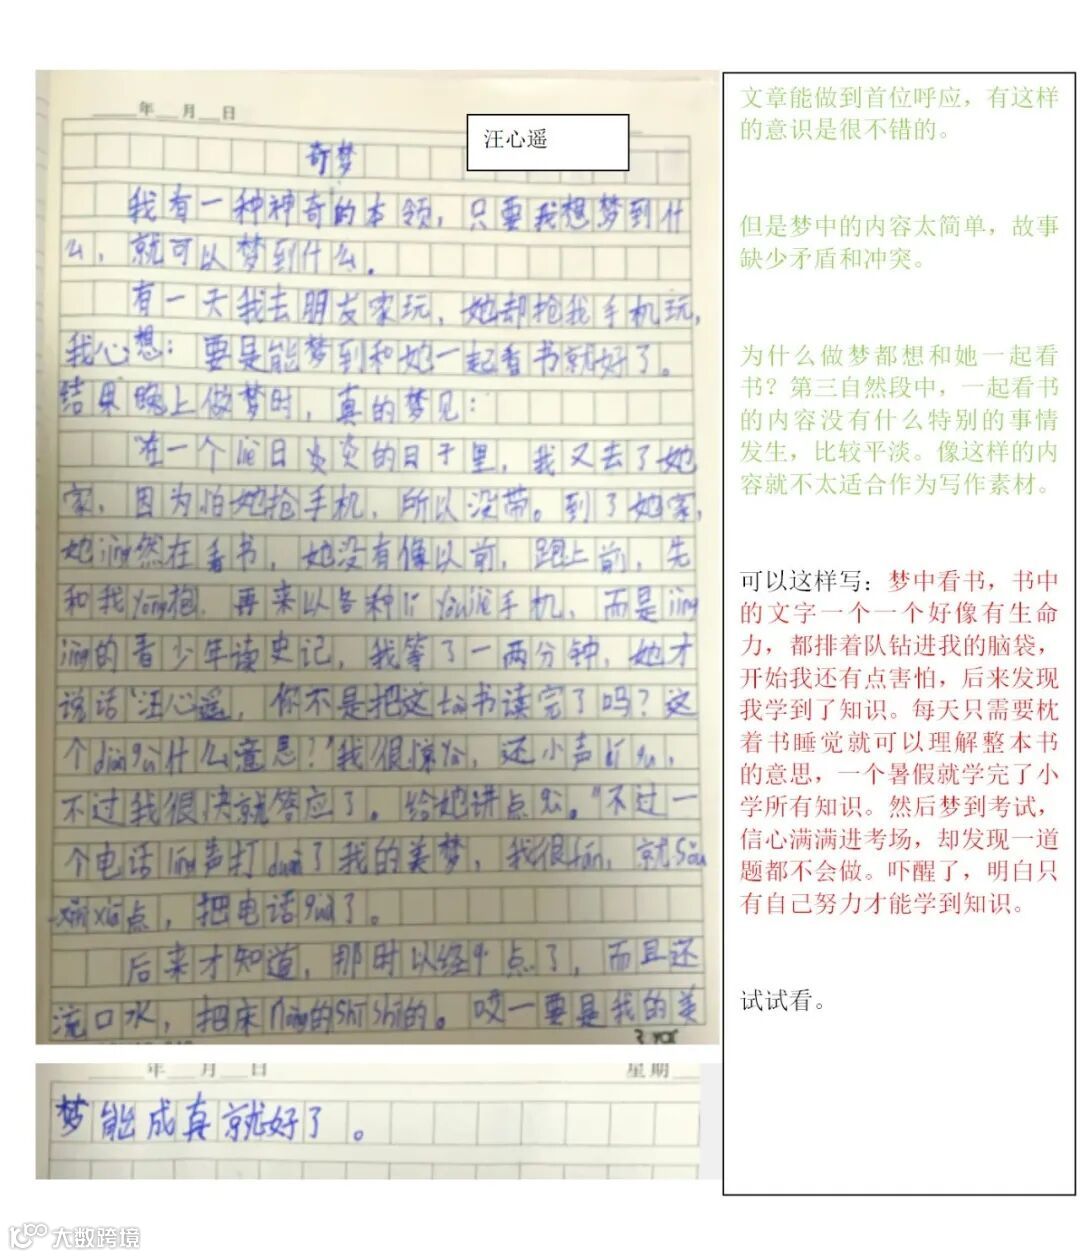 年 月 日
汪心遥
奇梦
我有一种神奇的本领，只要我想梦到什
么，就可以梦到什么。
有一天我去朋友家玩，她却抢我手机玩，
我心想：要是能梦到和她一起看书就好了。
结果晚上做梦时，真的梦见：
在一个liè日炎炎的日子里，我又去了她
家，因为怕她抢手机，所以没带。到了她家，
她jìng然在看书，她没有像以前，跑上前，先
和我yōng抱，再来以各种lǐ yóu 手机，而是jīng
jīng的看少年读史记，我等了一两分钟，她才
说话"汪心遥，你不是把这tào书读完了吗？这
个diǎn gù什么意思？"我很惊yà，还小声dí gu，
不过我很快就答应了。给她讲点 。"不过一
个电话líng声打duàn了我的美梦，我很fán，就
点，把电话guà了。
后来才知道，那时以经 点了，而且还
流口水，把床nòng的shī shī的。哎一要是我的美
年 月 日 星期
梦能成真就好了。
文章能做到首位呼应，有这样
的意识是很不错的。
但是梦中的内容太简单，故事
缺少矛盾和冲突。
为什么做梦都想和她一起看
书？第三自然段中，一起看书
的内容没有什么特别的事情
发生，比较平淡。像这样的内
容就不太适合作为写作素材。
可以这样写：梦中看书，书中
的文字一个一个好像有生命
力，都排着队钻进我的脑袋，
开始我还有点害怕，后来发现
我学到了知识。每天只需要枕
着书睡觉就可以理解整本书
的意思，一个暑假就学完了小
学所有知识。然后梦到考试，
信心满满进考场，却发现一道
题都不会做。吓醒了，明白只
有自己努力才能学到知识。
试试看。
大数跨境